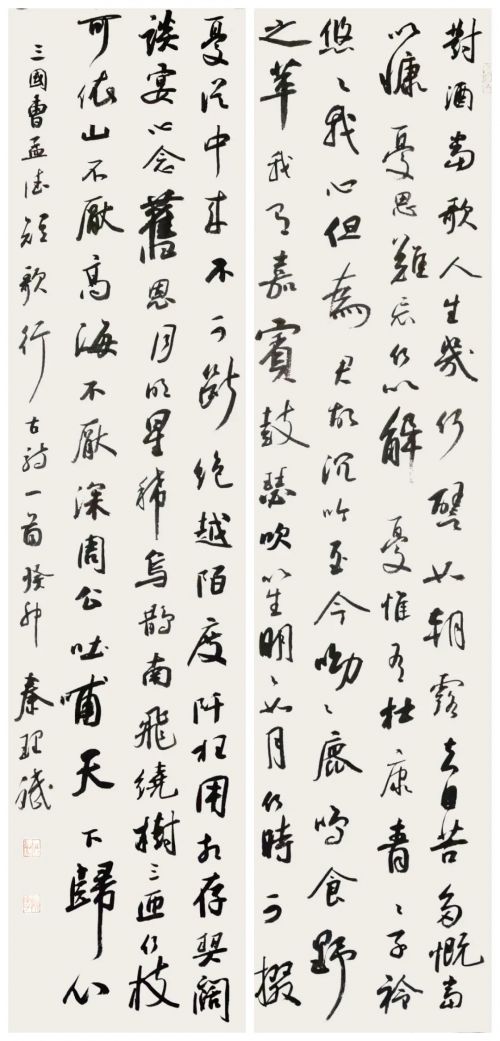 對酒當歌人生幾何譬如朝露去日苦多慨當
以慷憂思難忘何以解憂惟有杜康青〻子衿
悠〻我心但為君故沉吟至今呦〻鹿鳴食野
之苹我有嘉賓鼓瑟吹笙明〻如月何時可掇
憂從中來不可斷絕越陌度阡枉用相存契闊
談宴心念舊恩月明星稀烏鵲南飛繞樹三匝何枝
可依山不厭高海不厭深周公吐哺天下歸心
三國曹孟德短歌行古詩一首癸卯秦理